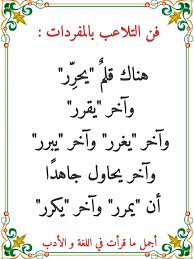 فن التلاعب بالمفردات :
هناك قلمٌ "يحرِّر"
وآخر "يقرر"
وآخر "يغرر" وآخر "يبرر"
وآخر يحاول جاهدًا
أن "يمرر" وآخر "يكرر"
أجمل ما قرأت في اللغة و الأدب